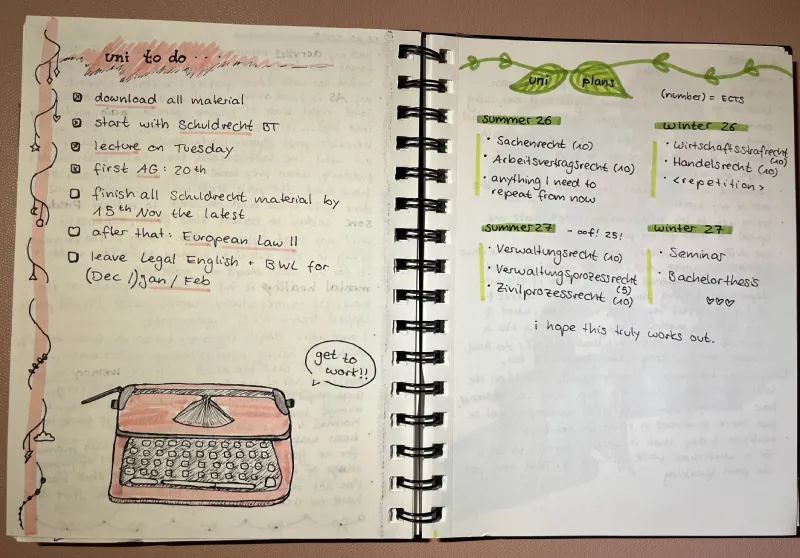 uni to do...
download all material
start with Schuldrecht BT
lecture on Tuesday
first AG: 20th
finish all Schuldrecht material by
15th Nov the latest
after that: European Law II
leave Legal English + BWL for
(Dec/)Jan/Feb
get to
work!!
uni plans
(number) = ECTS
summer 26
• Sachenrecht (10)
• Arbeitsvertragsrecht (10)
• anything I need to
repeat from now
winter 26
• Wirtschaftsstrafrecht
(10)
• Handelsrecht (10)
• <repetition>
summer 27 - oof! 25!
• Verwaltungsrecht (10)
• Verwaltungsprozessrecht
(5)
• Zivilprozessrecht
(10)
winter 27
• Seminar
• Bachelorthesis
♡♡♡
i hope this truly works out.